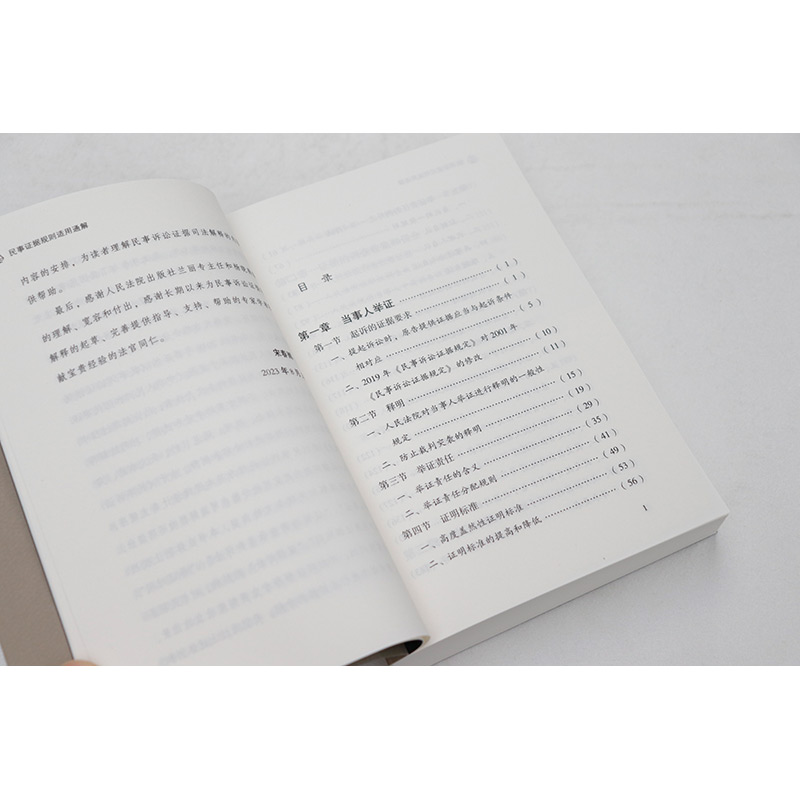 民事证据规则适用通解
内容的安排，为读者理解民事诉讼证据司法解释的
供帮助。
最后，感谢人民法院出版社兰丽专主任和
的理解、宽容和付出，感谢长期以来为民事诉讼证
解释的起草、完善提供指导、支持、帮助的专家学
献宝贵经验的法官同仁。
宋春
2023年8月
目 录
第一章 当事人举证 ……………… （1）
第一节 起诉的证据要求 ……………… （1）
一、提起诉讼时，原告提供证据应当与起诉条件
相对应 ……………… （5）
二、2019年《民事诉讼证据规定》对2001年
《民事诉讼证据规定》的修改 ……………… （10）
第二节 释明 ……………… （11）
一、人民法院对当事人举证进行释明的一般性
规定 ……………… （15）
二、防止裁判突袭的释明 ……………… （19）
第三节 举证责任 ……………… （29）
一、举证责任的含义 ……………… （35）
二、举证责任分配规则 ……………… （41）
第四节 证明标准 ……………… （49）
一、高度盖然性证明标准 ……………… （53）
二、证明标准的提高和降低 ……………… （56）
1